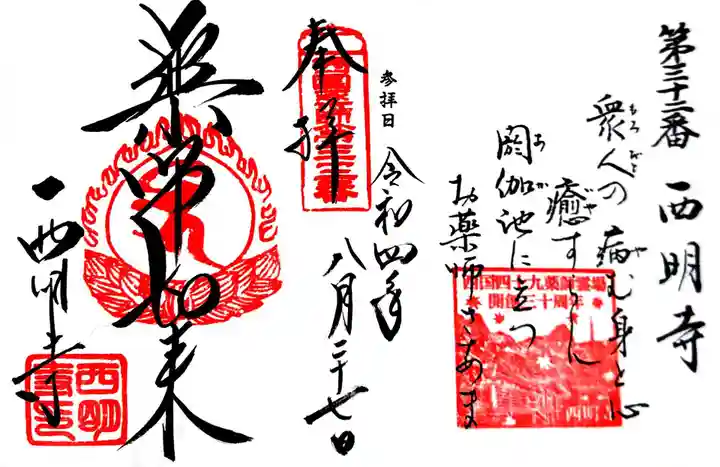 第三十二番 西明寺
衆人の病む身と心
もろびと や
癒すらん
いや
閼伽池に立つ
あ が
お薬師さあま
西国四十九薬師霊場
開創三十周年
西明寺
参拝日
令和四年
八月二十七日
奉拝
薬師如来
西明寺
西明